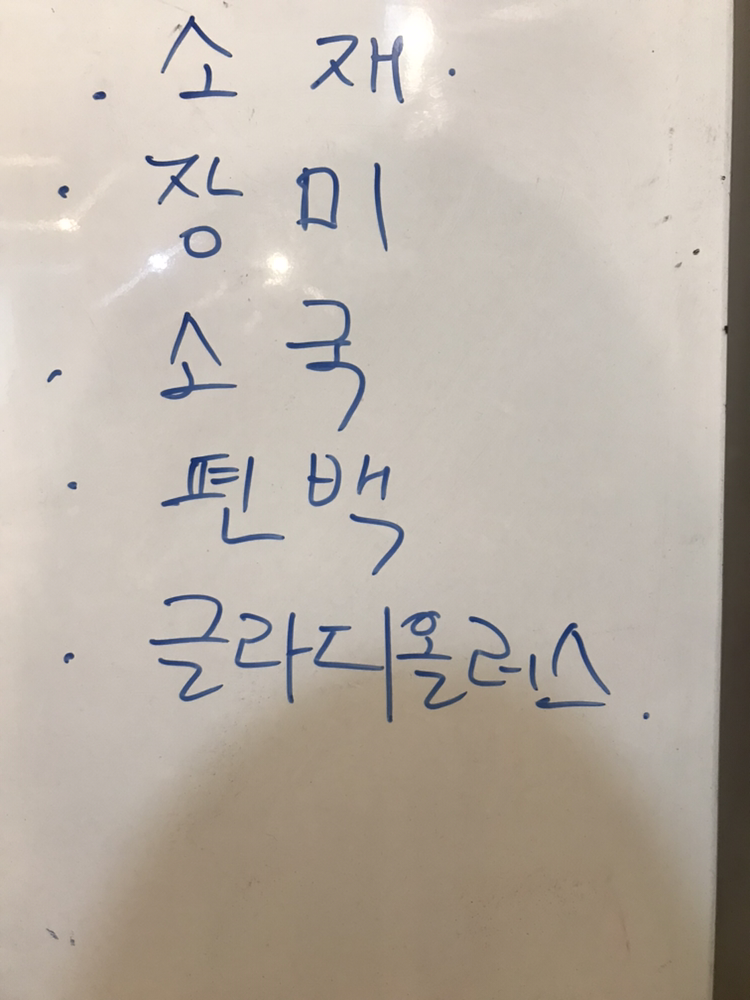 · 소재 ·
· 장미
· 소국
· 편백
· 글라디올러스.